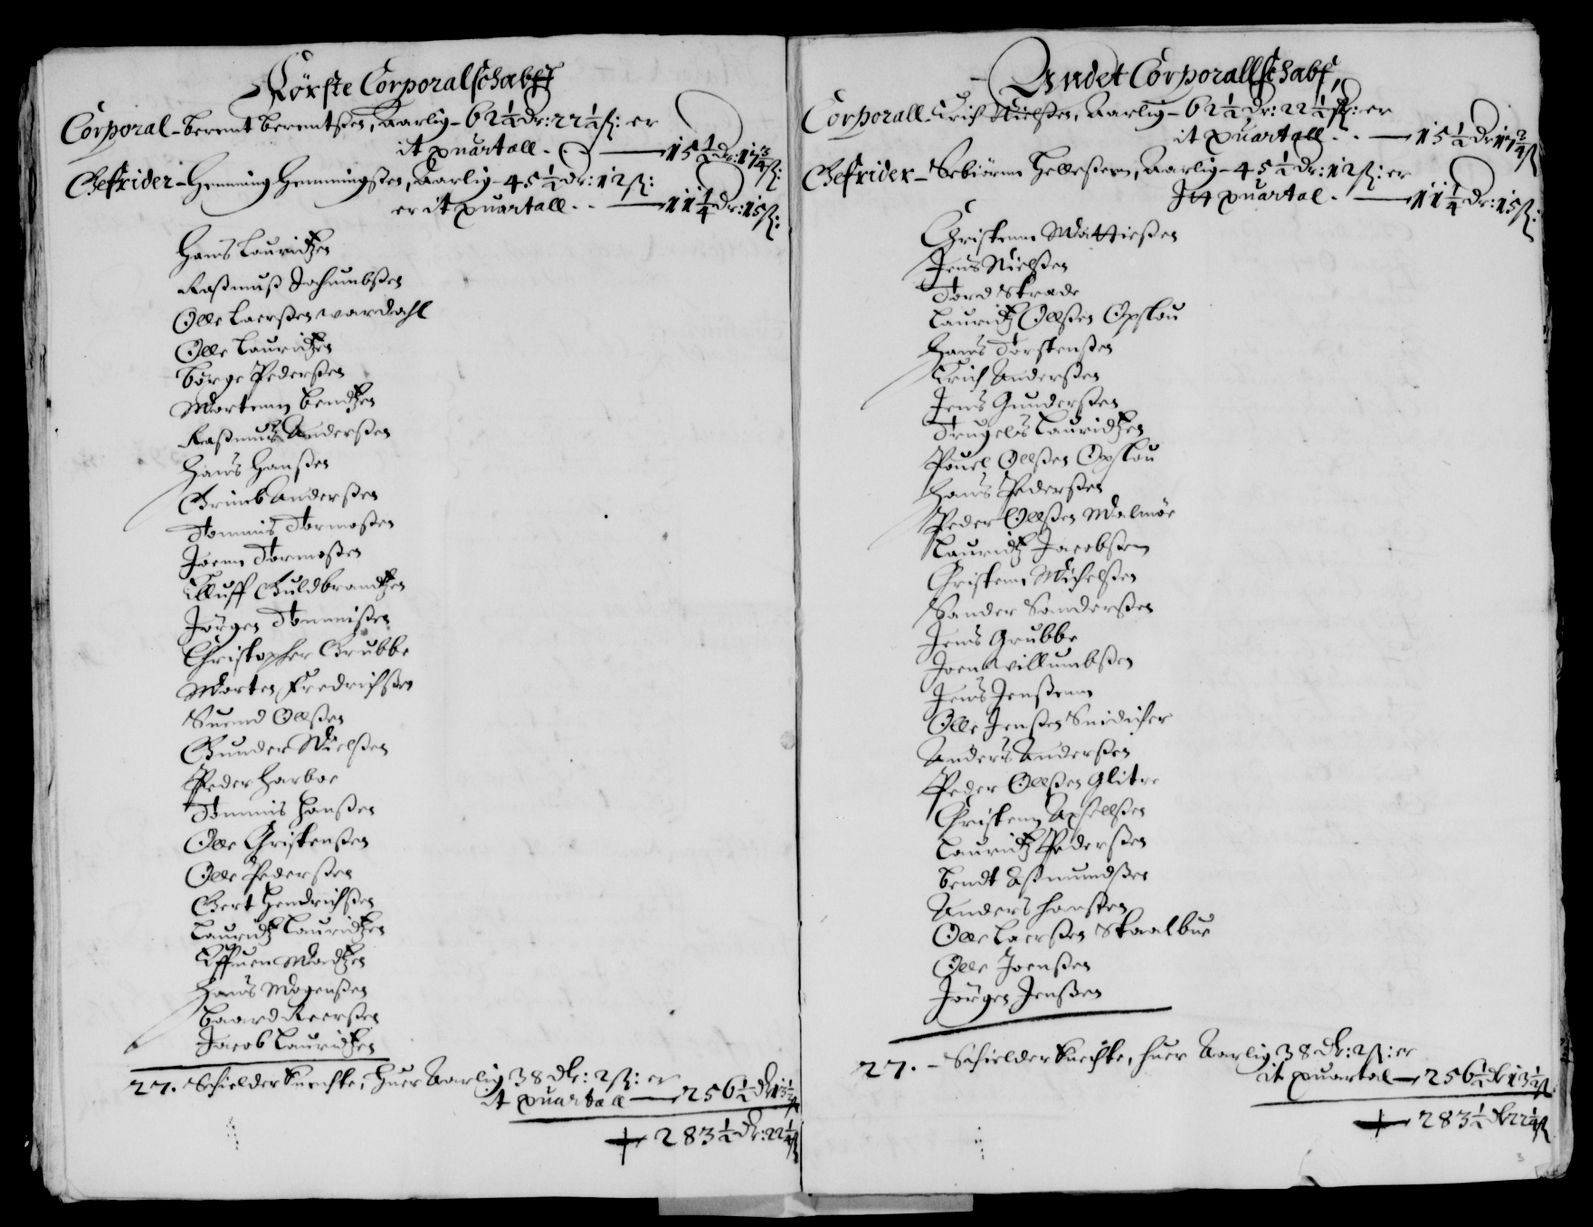 Förste Corporalschabff
Corporal - Berent Berentßen, Aarlig - 62½ dr: 22½ ß: er
it quartall. - 15½ dr: 17¾ ß:
Gefrider - Henning Henningßen, Aarlig - 45½ dr: 12 ß:
er it quartall. - 11¼ dr: 15 ß:
Hans Lauridtzen
Raßmuß Jochumbßen
Olle Laerßen Wardahl
Olle Lauridtzen
Börge Pederßen
Mortenn Bendtzen
Raßmus Anderßen
Hans Hanßen
Grimb Anderßen
Tommis Tormoßen
Joenn Tormoßen
Elluff Guldbrandtzen
Jörgen Tommißen
Christopher Grubbe
Morten Fredrichßen
Suend Olßen
Gunder Nielßen
Peder Harboe
Tommis Hanßen
Olle Christenßen
Olle Pederßen
Gert Hendrichßen
Lauridtz Lauridtzen
Effuen Madtzen
Hans Mogenßen
Baard Reerßen
Jacob Lauridtzen
27. Schielderknechte, huer Aarlig 38 dr: 2 ß: er
it quartall - 256½ dr 13½ ß
283½ dr: 22¼ ß
Andet Corporallschabf,
Corporall - Erich Nielßen, Aarlig - 62½ dr: 22½ ß: er
it quartall. - 15½ dr 17¾ ß
Gefrider - Sebiörnn Helleßenn, Aarlig - 45½ dr: 12 ß: er
It quartal. - 11¼ dr: 15 ß:
Christenn Mattießen
Jens Nielßen
Tord Skrade
Lauridtz Olßen Opslou
Hans Torstenßen
Erich Anderßen
Jens Gunderßen
Trugels Lauridtzen
Pouel Olßen Opslou
Hans Pederßen
Peder Olßen Malmöe
Lauridtz Jacobßenn
Christenn Michelßen
Sander Sanderßen
Jens Grubbe
Joen Villumbßen
Jens Jenßenn
Olle Jenßen Snidicher
Anders Anderßen
Peder Olßen Glitre
Christenn Axsellßen
Lauridtz Pederßen
Bendt Aßmundßen
Anders Hanßen
Olle Laerßen Skaalbue
Olle Joenßen
Jörgen Jenßen
27. - Schielderknechte, huer Aarlig 38 dr: 2 ß: er
it quartal - 256½ dr 13½ ß
283½ dr 22¼ ß
3